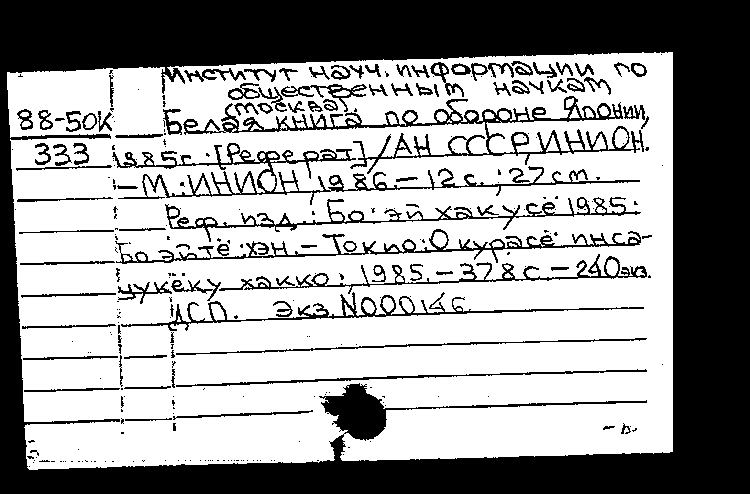 Институт науч. информации по
общественным наукам
(Москва).
88-50К Белая книга по обороне Японии,
333 1985г. [Реферат] / АН СССР, ИНИОН.
- М.: ИНИОН, 1986. - 12 с. ; 27 cm.
Реф. изд.: Бо:эй хакусё 1985:
Бо:эйтё:хэн. - Токио: Окурасё: инса-
цукёку хакко:, 1985. - 378 с - 240 экз.
ДСП. Экз. N000146